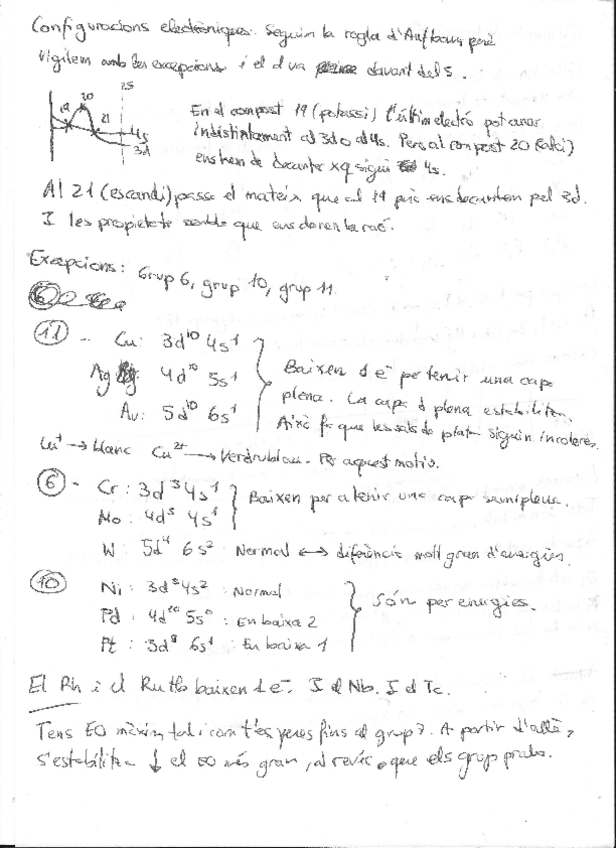 Configuracions electròniques. Seguim la regla d'Aufbau, però
vigilem amb les excepcions i el d va davant del s.
25
20
19
21
4s
3d
En el compost 19 (potassi) l'últim electró pot anar
indistintament al 3d o al 4s. Però al compost 20 (calci)
ens hem de decantar xq sigui 4s.
Al 21 (escandi) passa el mateix que al 19 però ens decantem pel 3d.
I les propietats són les que ens donen la raó.
Excepcions: Grup 6, grup 10, grup 11
11 - Cu: 3d¹⁰ 4s¹
Ag: 4d¹⁰ 5s¹
Au: 5d¹⁰ 6s¹
Baixen 1 e⁻ per tenir una capa
plena. La capa d plena estabilitza.
Això fa que les sals de plata siguin incolores.
Cu⁺ → blanc Cu²⁺ → Verd/blau. Per aquest motiu.
6 - Cr: 3d⁵ 4s¹
Mo: 4d⁵ 4s¹
Baixen per a tenir una capa semiplena.
W: 5d⁴ 6s² Normal ↔ diferència molt gran d'energies.
10 Ni: 3d⁸ 4s² : Normal
Pd: 4d¹⁰ 5s⁰ : En baixa 2
Pt: 3d⁹ 6s¹ : En baixa 1
Són per energies.
El Rh i el Ru tb baixen 1 e⁻. I el Nb. I el Tc.
Tens EO màxim tal i com t'esperes fins al grup 7. A partir d'allà,
s'estabilitza ↓ el més gran, al revés que els grups p